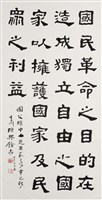 國民革命之目的在
造成獨立自由之國
家以擁護國家及民
眾之利益